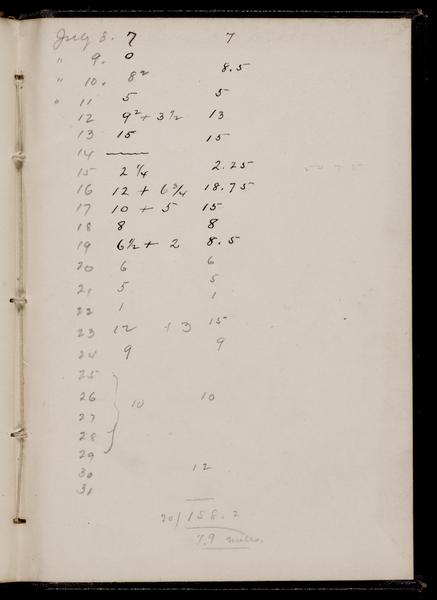 July 8. 7 7
" 9. 0
" 10. 8² 8.5
" 11 5 5
12 9² + 3½ 13
13 15 15
14 —
15 2 ¼ 2.25
16 12 + 6¾ 18.75
17 10 + 5 15
18 8 8
19 6½ + 2 8.5
20 6 6
21 5 5
22 1 1
23 12 + 3 15
24 9 9
25
26 10 10
27
28
29
30 12
31
20/158.2
7.9 miles.